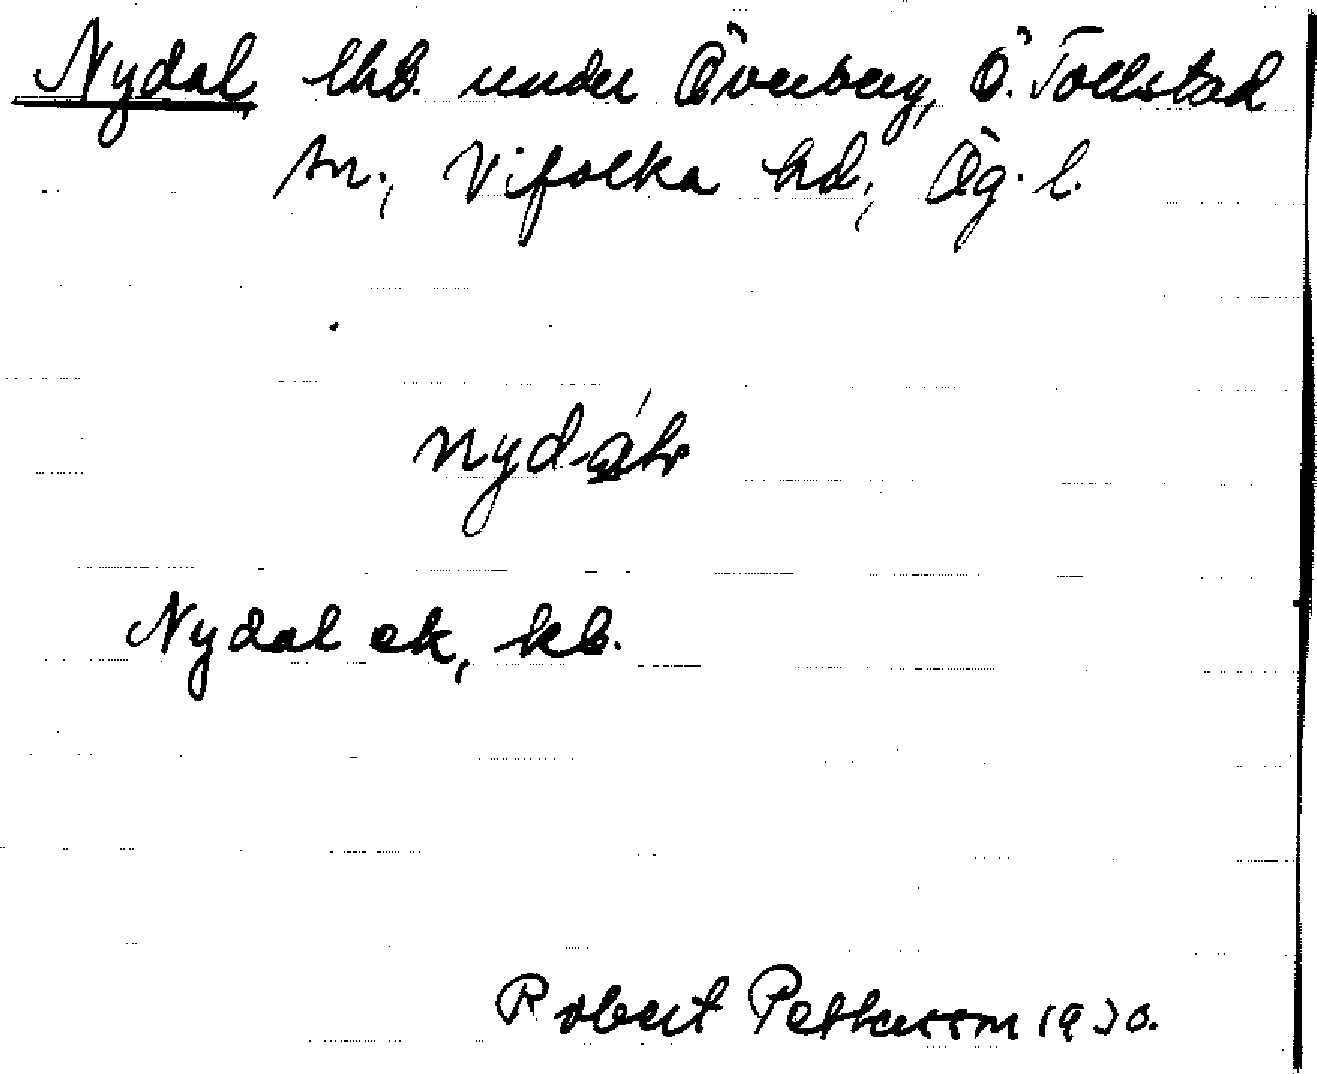 Nydal lhb. under Överberg, Ö. Tollstad
sn., Vifolka hd, Ög. l.
Nydal ek, kb.
Robert Pettersson 1930.